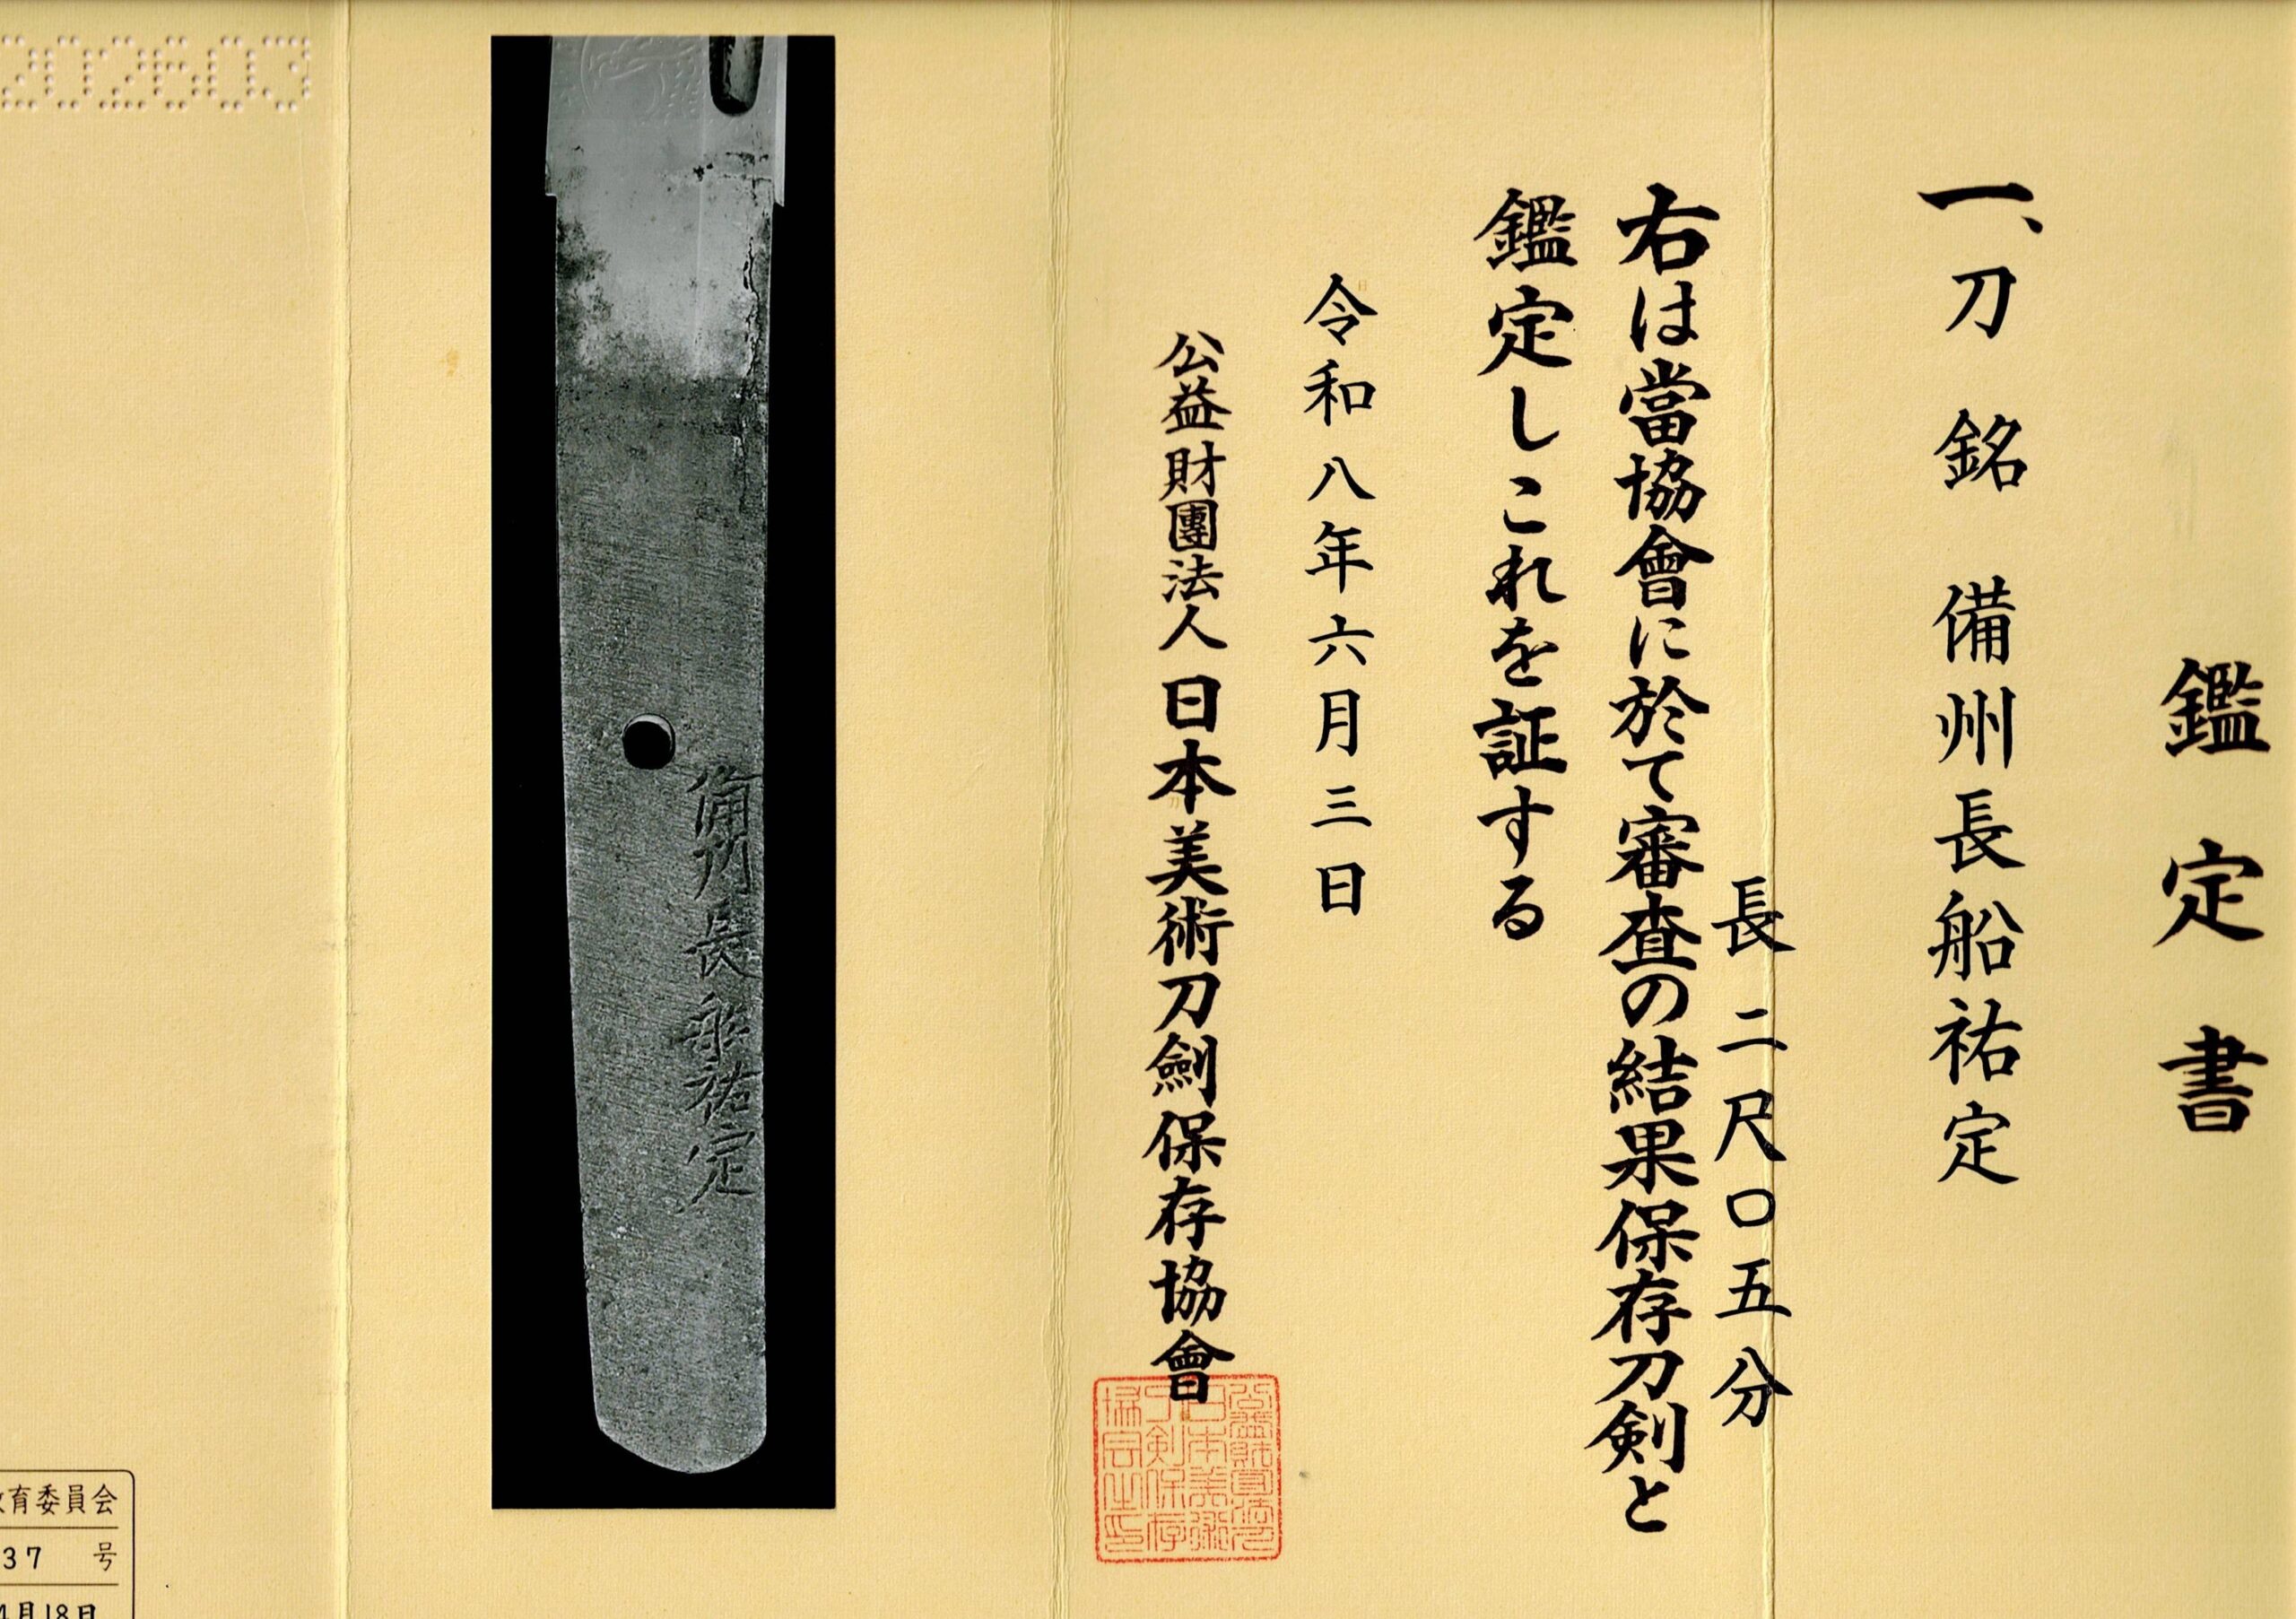 鑑定書
一、刀 銘 備州長船祐定
長二尺〇五分
右は當協會に於て審査の結果保存刀剣と
鑑定しこれを証する
令和八年六月三日
公益財團法人 日本美術刀劍保存協會
備州長船祐定
202603
育委員会
37 号
4月18日